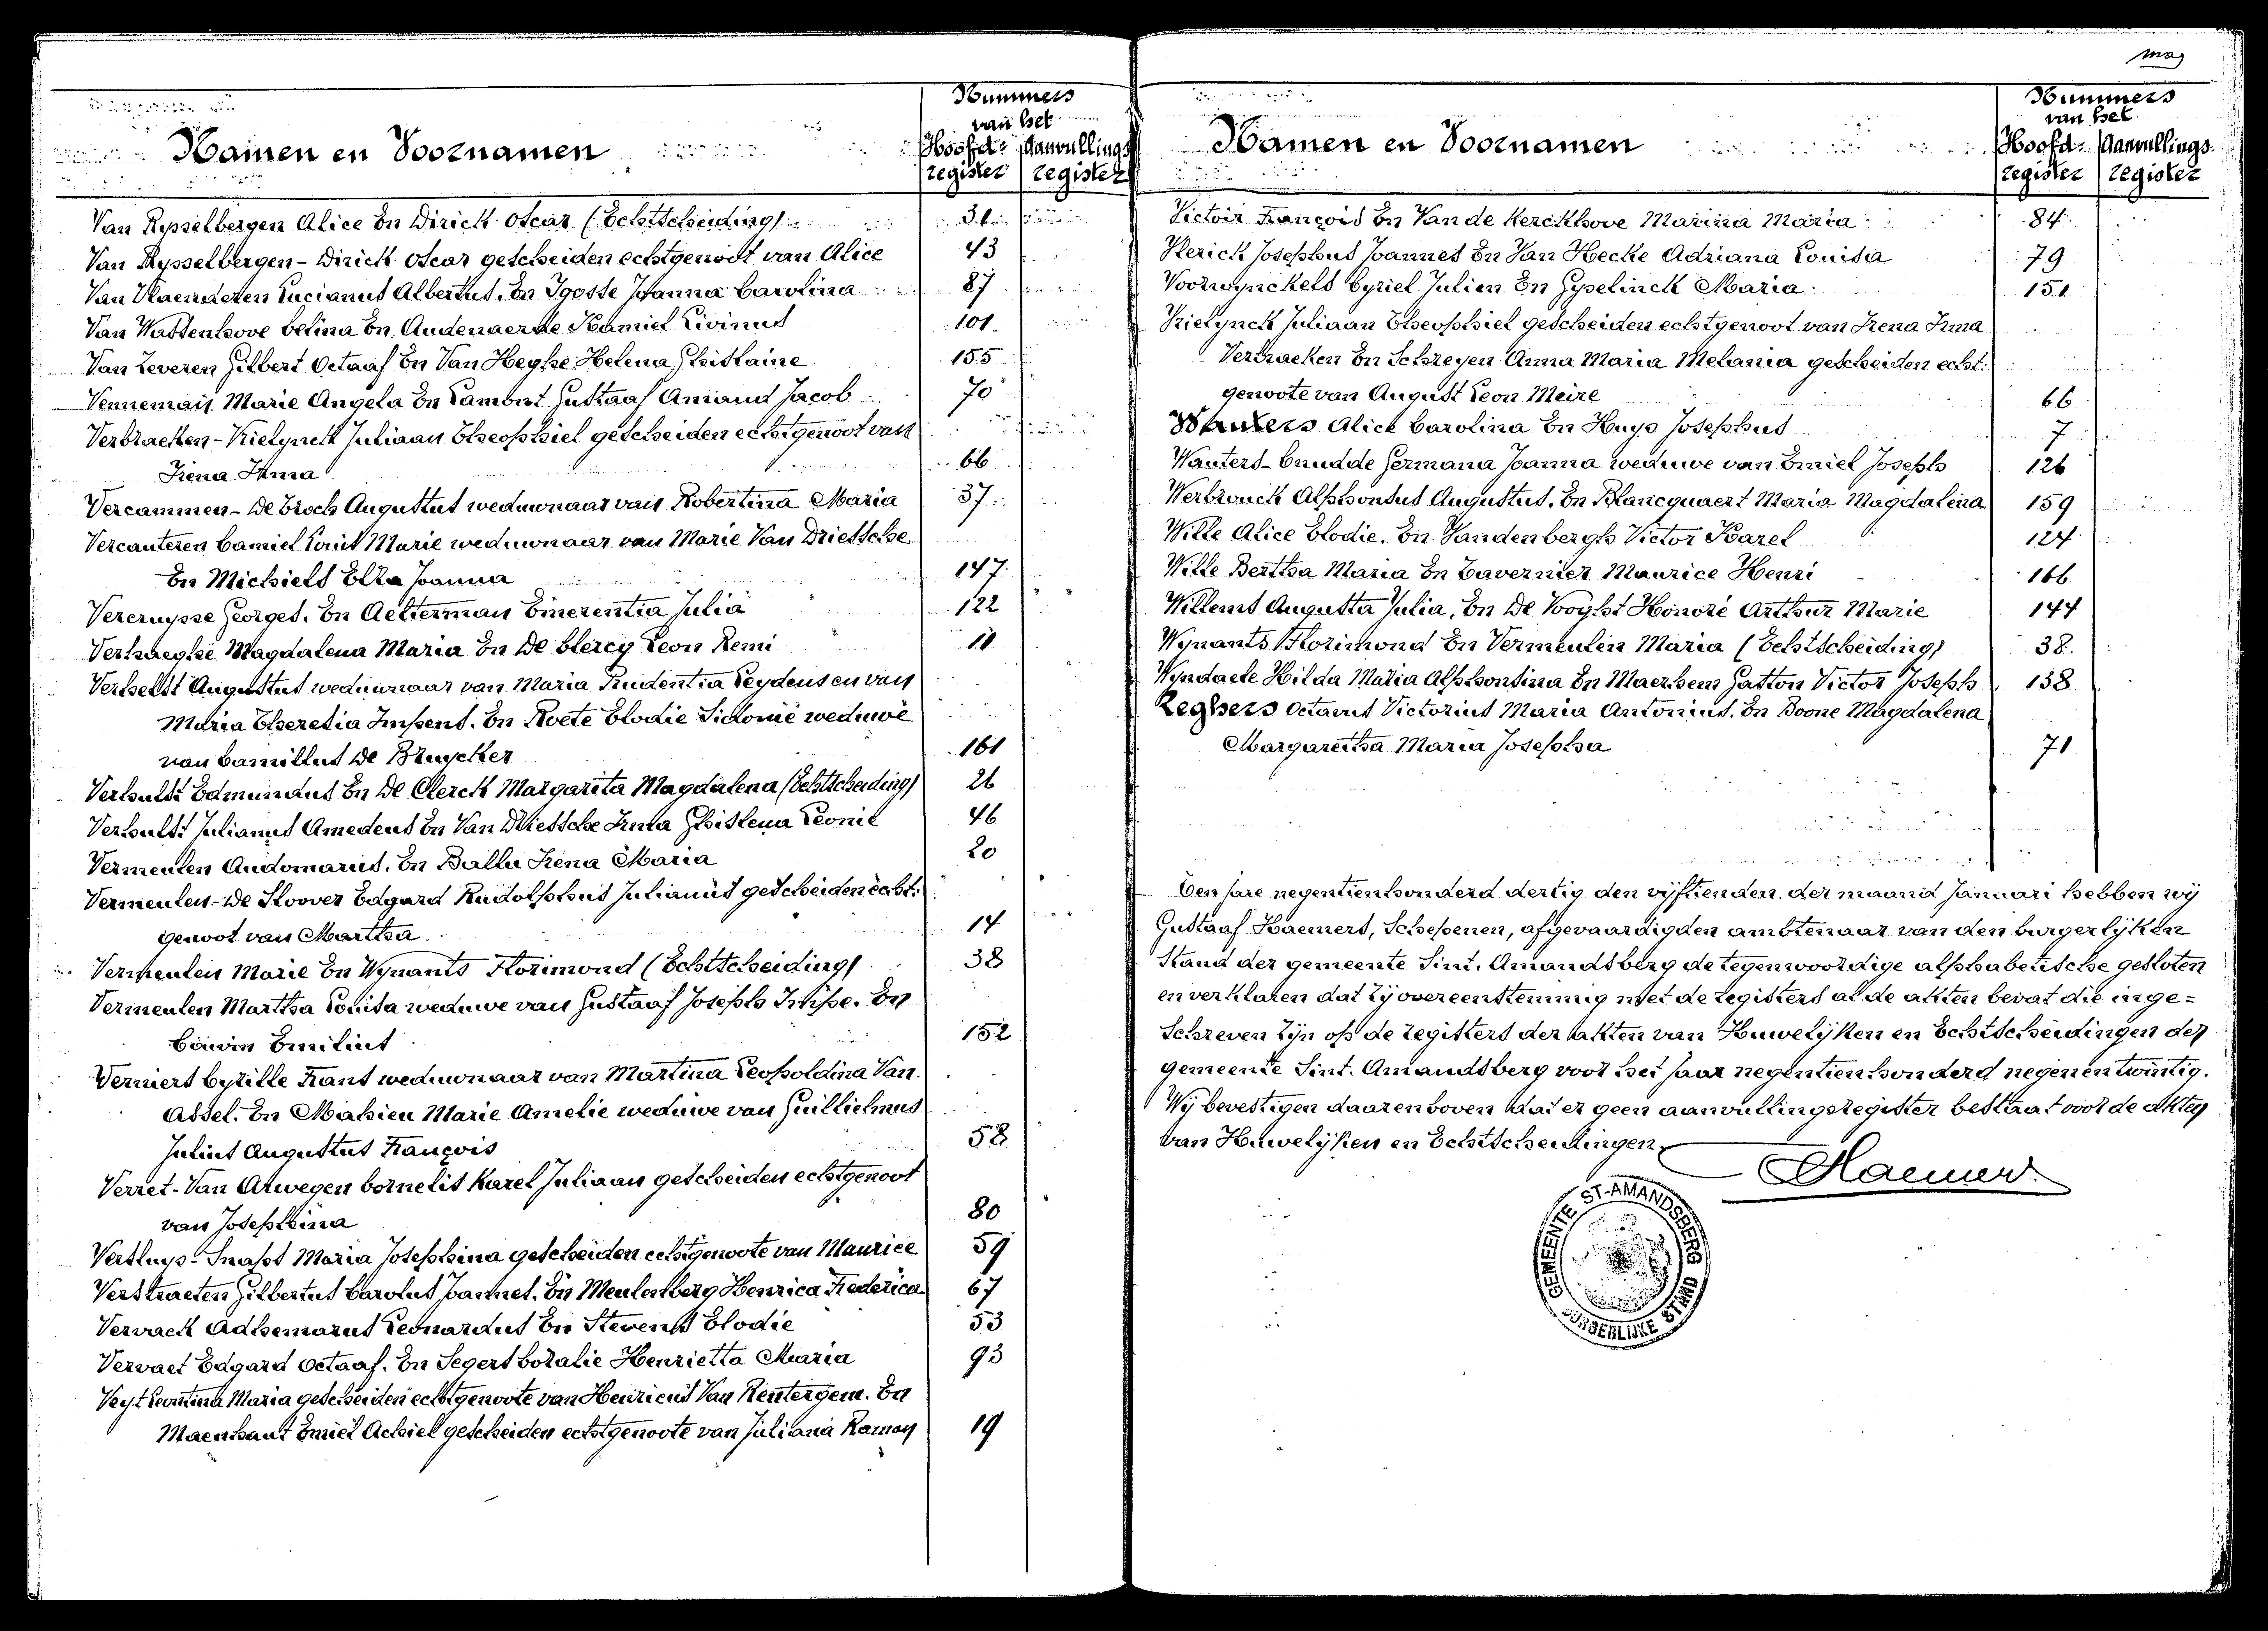 Nummers
van het
Namen en Voornamen
Hoofd- Aanvullings
register register
Van Rysselbergen Alice En Dirick Oscar (Echtscheiding) 31
Van Rysselbergen - Dirick Oscar gescheiden echtgenoot van Alice 43
Van Vlaenderen Lucianus Albertus. En Igosse Joanna Carolina 87
Van Wassenhove Celina En Audenaerde Kamiel Livinus 101
Van Zeveren Gilbert Octaaf En Van Heghe Helena Ghislaine 155
Vennemais Marie Angela En Lamont Gustaaf Amand Jacob 70
Verbraeken - Vrielynck Juliaan Theophiel gescheiden echtgenoot van
Irena Irma 66
Vercammen - De Croch Augustus weduwnaar van Robertina Maria 37
Vercauteren Camiel Louis Marie weduwnaar van Marie Van Driessche
En Michiels Elza Joanna 147
Vercruysse Georges. En Aelterman Emerentia Julia 122
Verhaeghe Magdalena Maria En De Clercq Leon Remi 11
Verhelst Augustus weduwnaar van Maria Prudentia Leydens en van
Maria Theresia Impens. En Roete Elodie Sidonie weduwe
van Camillus De Bruycker 161
Verhulst Edmundus En De Clerck Margarita Magdalena (Echtscheiding) 26
Verhulst Julianus Amedeus En Van Driessche Irma Ghislena Leonie 46
Vermeulen Audomarus. En Ballu Irena Maria 20
Vermeulen - De Stoover Edgard Rudolphus Julianus gescheiden echt-
genoot van Martha 14
Vermeulen Marie En Wynants Florimond (Echtscheiding) 38
Vermeulen Martha Louisa weduwe van Gustaaf Joseph Impe. En
Cauvin Emilius 152
Verniers Cyrille Frans weduwnaar van Martina Leopoldina Van
Assel. En Mahieu Marie Amelie weduwe van Guillielmus
Julius Augustus François 58
Verret - Van Auwegen Cornelis Karel Juliaan gescheiden echtgenoot
van Josephina 80
Versluys - Snapt Maria Josephina gescheiden echtgenoote van Maurice 59
Verstraeten Gilbertus Carolus Joannes. En Meulenberg Henrica Frederica 67
Vervack Adhemarus Leonardus En Stevens Elodie 53
Vervaet Edgard Octaaf. En Segers Coralie Henrietta Maria 93
Veys Leontina Maria gescheiden echtgenoote van Henricus Van Rentergem. En
Maenhaut Emiel Achiel gescheiden echtgenoote van Juliana Ramon 19
Nummers
van het
Namen en Voornamen
Hoofd- Aanvullings-
register register
Victoir François En Van de Kerckhove Marina Maria 84
Vlerick Josephus Joannes En Van Hecke Adriana Louisa 79
Voorwynckels Cyriel Julien En Gyselinck Maria 151
Vrielynck Juliaan Theophiel gescheiden echtgenoot van Irena Irma
Verbraeken En Schreyen Anna Maria Melania gescheiden echt-
genoote van August Leon Meire 66
Wauters Alice Carolina En Huys Josephus 7
Wauters - Cnudde Germana Joanna weduwe van Emiel Joseph 126
Werbrouck Alphonsus Augustus. En Blancquaert Maria Magdalena 159
Wille Alice Elodie. En Vandenbergh Victor Karel 124
Wille Bertha Maria En Tavernier Maurice Henri 166
Willems Augusta Julia. En De Vooght Honoré Arthur Marie 144
Wynants Florimond En Vermeulen Maria (Echtscheiding) 38
Wyndaele Hilda Maria Alphonsina En Maerhem Gaston Victor Joseph 138
Zeghers Octavus Victorius Maria Antonius. En Boone Magdalena
Margaretha Maria Josepha 71
Den jare negentienhonderd dertig den vyftienden der maand Januari hebben wij
Gustaaf Haemers, Schepenen, afgevaardigden ambtenaar van den burgerlyken
Stand der gemeente Sint. Amandsberg de tegenwoordige alphabetische gesloten
en verklaren dat zy overeenstemmig met de registers al de akten bevat die inge=
schreven zyn op de registers der akten van Huwelyken en Echtscheidingen der
gemeente Sint. Amandsberg voor het jaar negentienhonderd negenentwintig.
Wy bevestigen daarenboven dat er geen aanvullingsregister bestaat voor de akten
van Huwelyken en Echtscheidingen
GHaemers
GEMEENTE ST-AMANDSBERG
BURGERLIJKE STAND